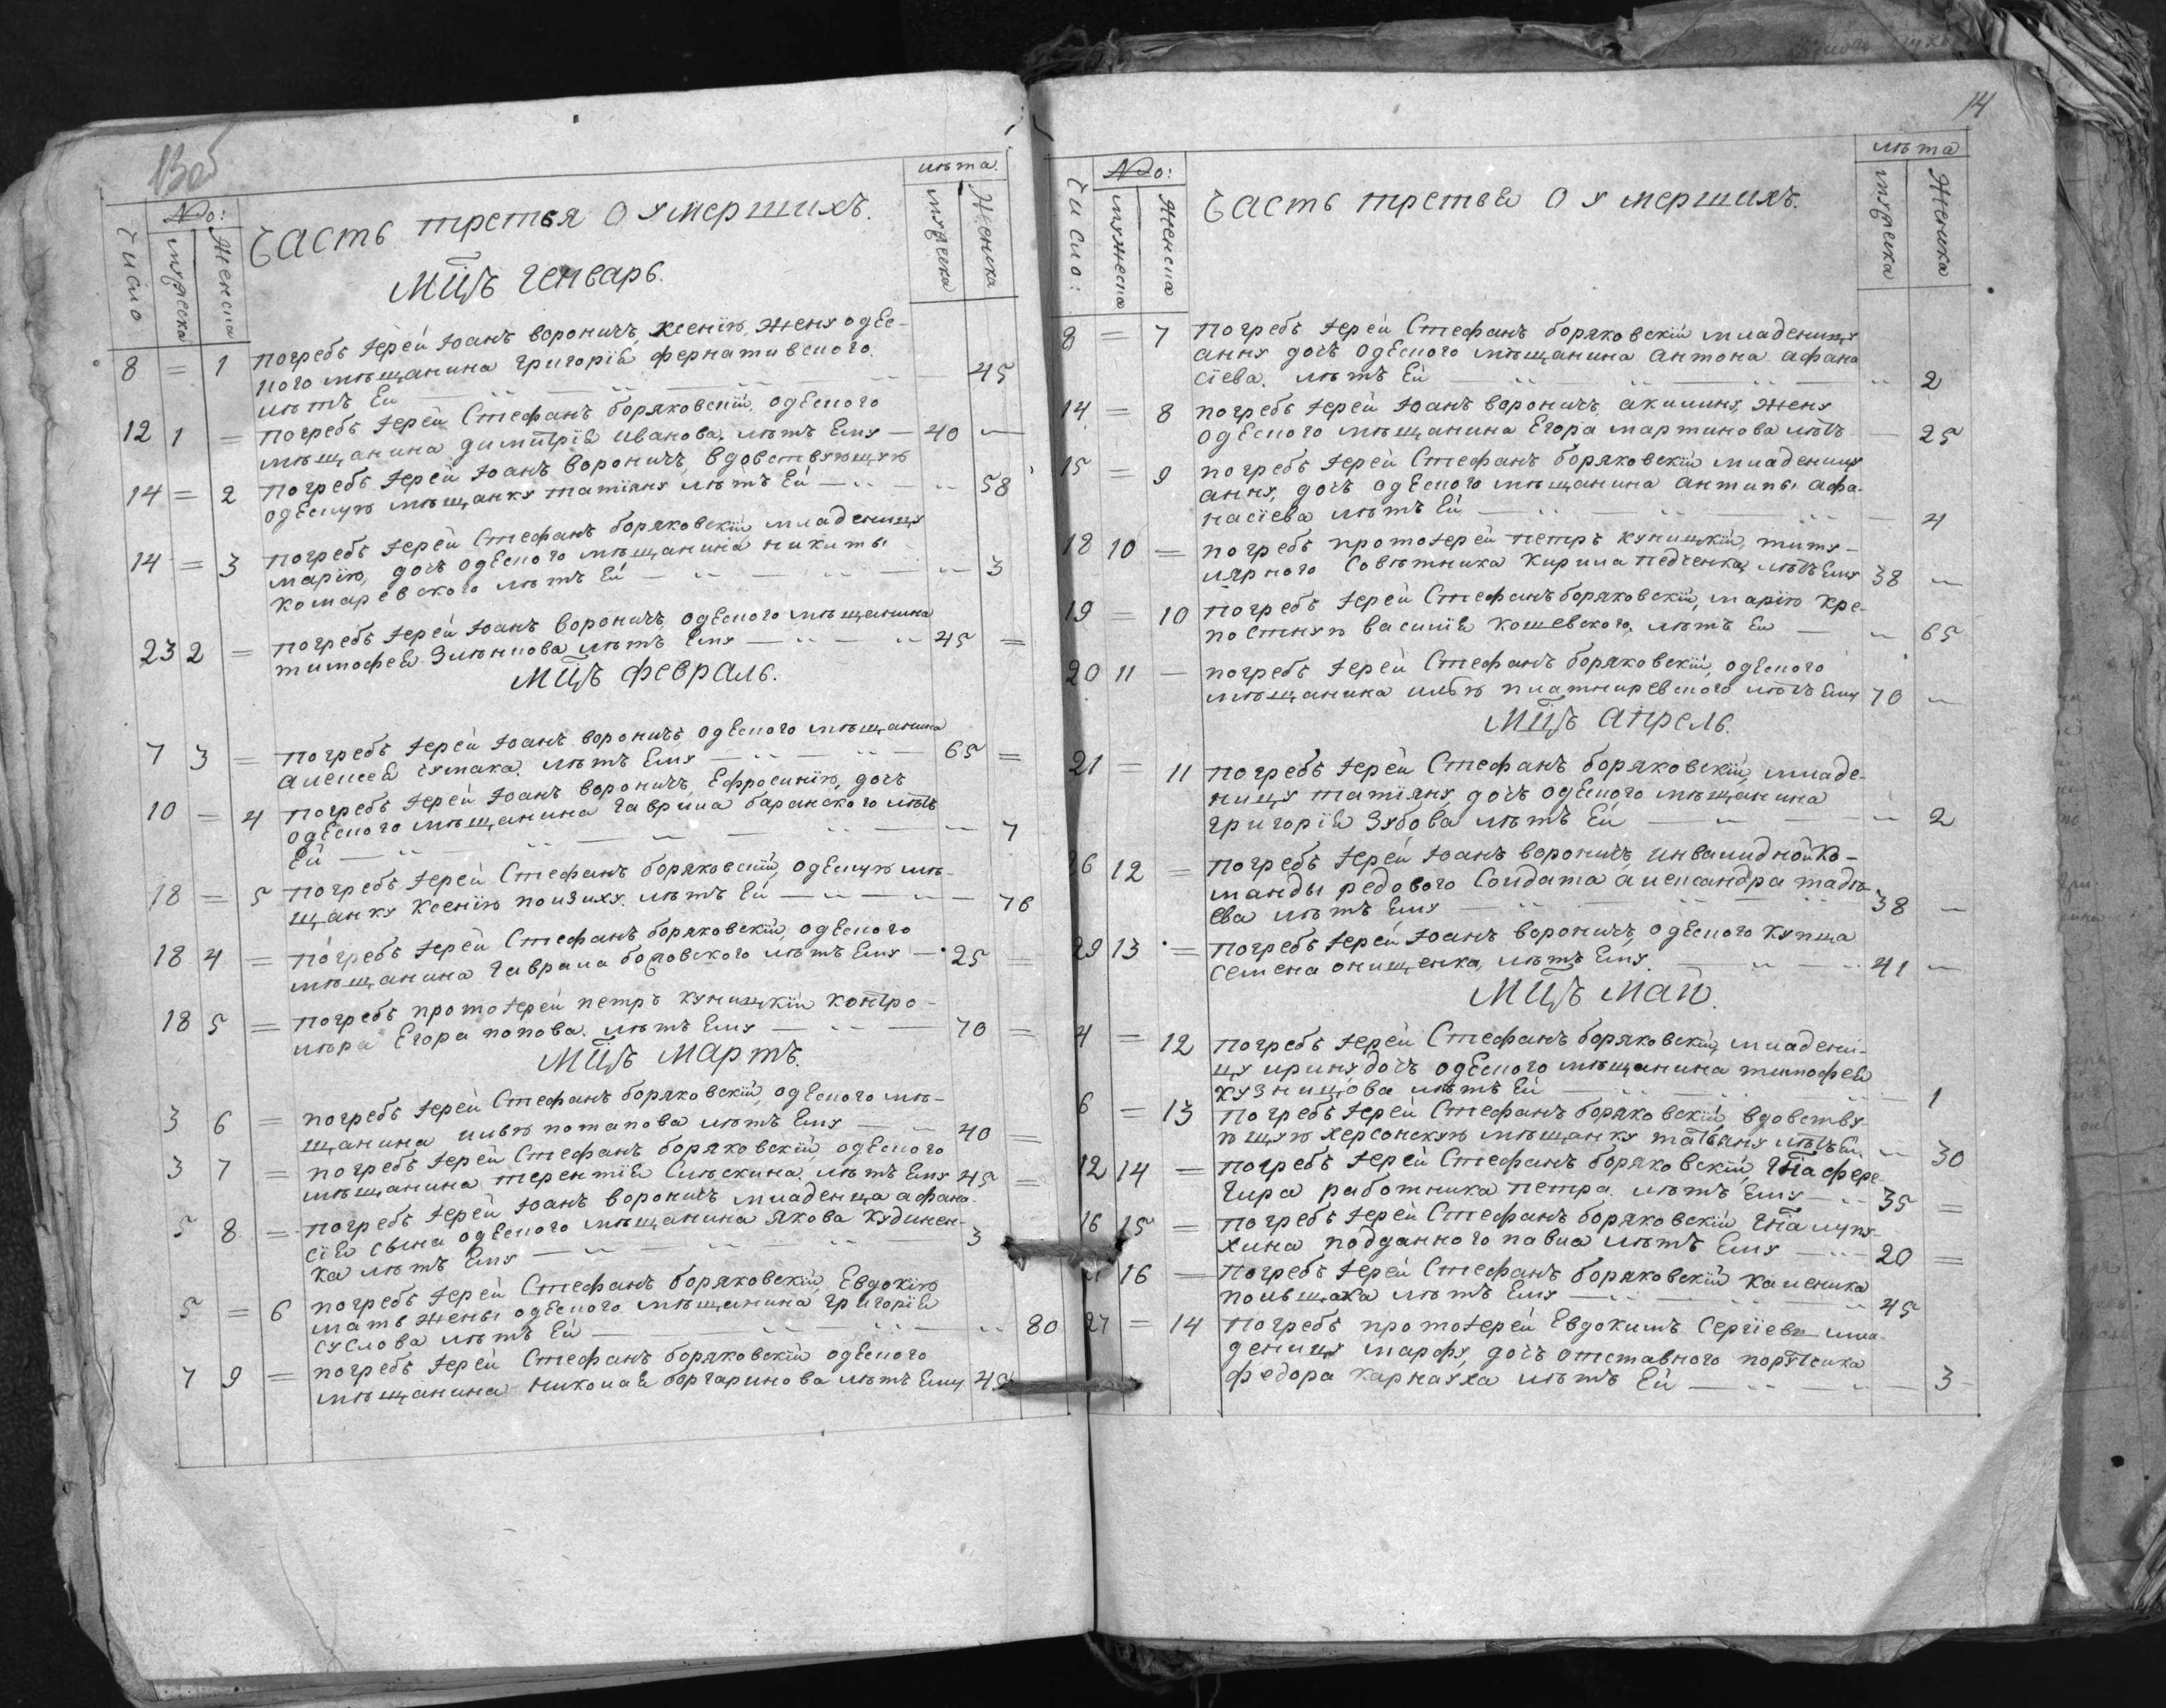 13об
№о:
лѣта.
Число
мужеска
Женска
Часть третья О умершихъ.
мужеска
Женска
Мц̃ъ Генварь.
8 = 1 Погребъ Іерей Іоанъ вороничъ, ксенію, жену одес-
ного мѣщанина григорія фернативского.
лѣтъ Ей 45
12 1 = Погребъ Іерей Стефанъ боряковскій, одесного
мѣщанина димитрія иванова, лѣтъ Ему 40
14 = 2 Погребъ Іерей Іоанъ вороничъ, вдовствующую
одесную мѣщанку татіяну лѣтъ Ей 58
14 = 3 Погребъ Іерей Стефанъ боряковскій младеницу
марію, дочъ одесного мѣщанина никиты
комаревского лѣтъ Ей 3
23 2 = Погребъ Іерей Іоанъ вороничъ, одесного мѣщанина
тимофея лѣтъ Ему 45 =
Мц̃ъ Февраль.
7 3 = Погребъ Іерей Іоанъ вороничъ, одесного мѣщанина
алексея чумака. лѣтъ Ему 65 =
10 = 4 Погребъ Іерей Іоанъ вороничъ, Ефросинію, дочъ
одесного мѣщанина гаврила баранского лѣтъ
Ей 7
18 = 5 Погребъ Іерей Стефанъ боряковскій, одесную мѣ-
щанку ксенію лѣтъ Ей 76
18 4 = Погребъ Іерей Стефанъ боряковскій, одесного
мѣщанина гаврила бословского лѣтъ Ему 25 =
18 5 = Погребъ протоіерей петръ куницкій контро-
лѣра Егора попова. лѣтъ Ему 70 =
Мц̃ъ Мартъ.
3 6 = Погребъ Іерей Стефанъ боряковскій, одесного мѣ-
щанина илью потапова лѣтъ Ему 40 =
3 7 = Погребъ Іерей Стефанъ боряковскій, одесного
мѣщанина терентія лѣтъ Ему 45 =
5 8 = Погребъ Іерей Іоанъ вороничъ младенца афана-
сія сына одесного мѣщанина якова кудинен-
ка лѣтъ Ему 3
5 = 6 Погребъ Іерей Стефанъ боряковскій, Евдокію
мать жены одесного мѣщанина григорія
суслова лѣтъ Ей 80
7 9 = Погребъ Іерей Стефанъ боряковскій одесного
мѣщанина николая боргаринова лѣтъ Ему
14
№о:
лѣта
Число:
мужеска
Женска
Часть третья О умершихъ.
мужеска
Женска
8 = 7 Погребъ Іерей Стефанъ боряковскій младеницу
анну дочъ одесного мѣщанина антона афана
сіева. лѣтъ Ей 2
14 = 8 Погребъ Іерей Іоанъ вороничъ, акилину, жену
одесного мѣщанина Егора мартинова лѣтъ 25
15 = 9 Погребъ Іерей Стефанъ боряковскій младеницу
анну, дочъ одесного мѣщанина антипы афа-
насіева лѣтъ Ей 4
18 10 = Погребъ протоіерей петръ куницкій, титу-
лярного Совѣтника кирила педченка, лѣтъ Ему 38
19 = 10 Погребъ Іерей Стефанъ боряковскій, марію кре-
постную василія кошевского, лѣтъ Ей 65
20 11 — Погребъ Іерей Стефанъ боряковскій, одесного
мѣщанина илью лѣтъ Ему 70
Мц̃ъ Апрель.
21 = 11 Погребъ Іерей Стефанъ боряковскій, младе-
ницу татіяну дочъ одесного мѣщанина
григорія Зубова лѣтъ Ей 2
26 12 = Погребъ Іерей Іоанъ вороничъ, инвалидной ко-
манды редового Солдата александра тадѣ-
ева лѣтъ Ему 38
29 13 = Погребъ Іерей Іоанъ вороничъ, одесного купца
семена онищенка, лѣтъ Ему. 41
Мц̃ъ Маій.
4 = 12 Погребъ Іерей Стефанъ боряковскій, младени-
цу ирину дочъ одесного мѣщанина тимофея
кузницова лѣтъ Ей 1
6 = 13 Погребъ Іерей Стефанъ боряковскій, вдовству-
ющую херсонскую мѣщанку татьяну лѣтъ Ей 30
12 14 = Погребъ Іерей Стефанъ боряковскій,
работника петра. лѣтъ Ему 35 =
16 15 = Погребъ Іерей Стефанъ боряковскій
подданного павла лѣтъ Ему 20 =
16 = Погребъ Іерей Стефанъ боряковскій каленика
лѣтъ Ему 45
27 = 14 Погребъ протоіерей Евдокимъ Сергіевъ мла-
деницу марфу, дочъ отставного порутчика
федора карнауха лѣтъ Ей 3